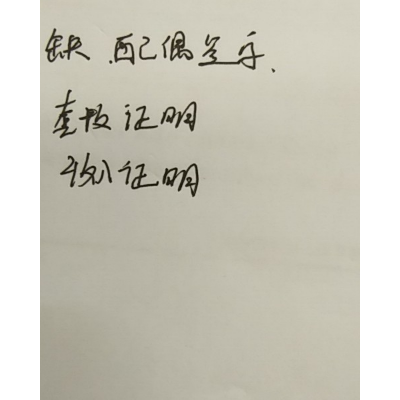 缺 配偶签字.
查 证明
证明